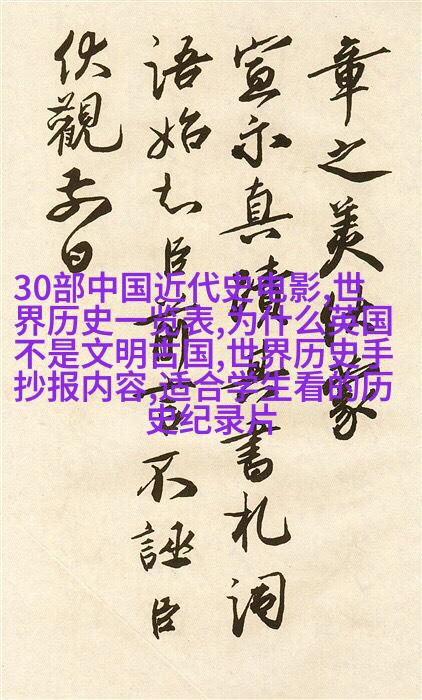 章之美伏蒙
宣示真蹟書札词
語始知臣前言不誣臣
伏觀前日
30部中国近代史电影,世
界历史一览表,为什么英国
不是文明古国,世界历史手
抄报内容,适合学生看的历
史纪录片